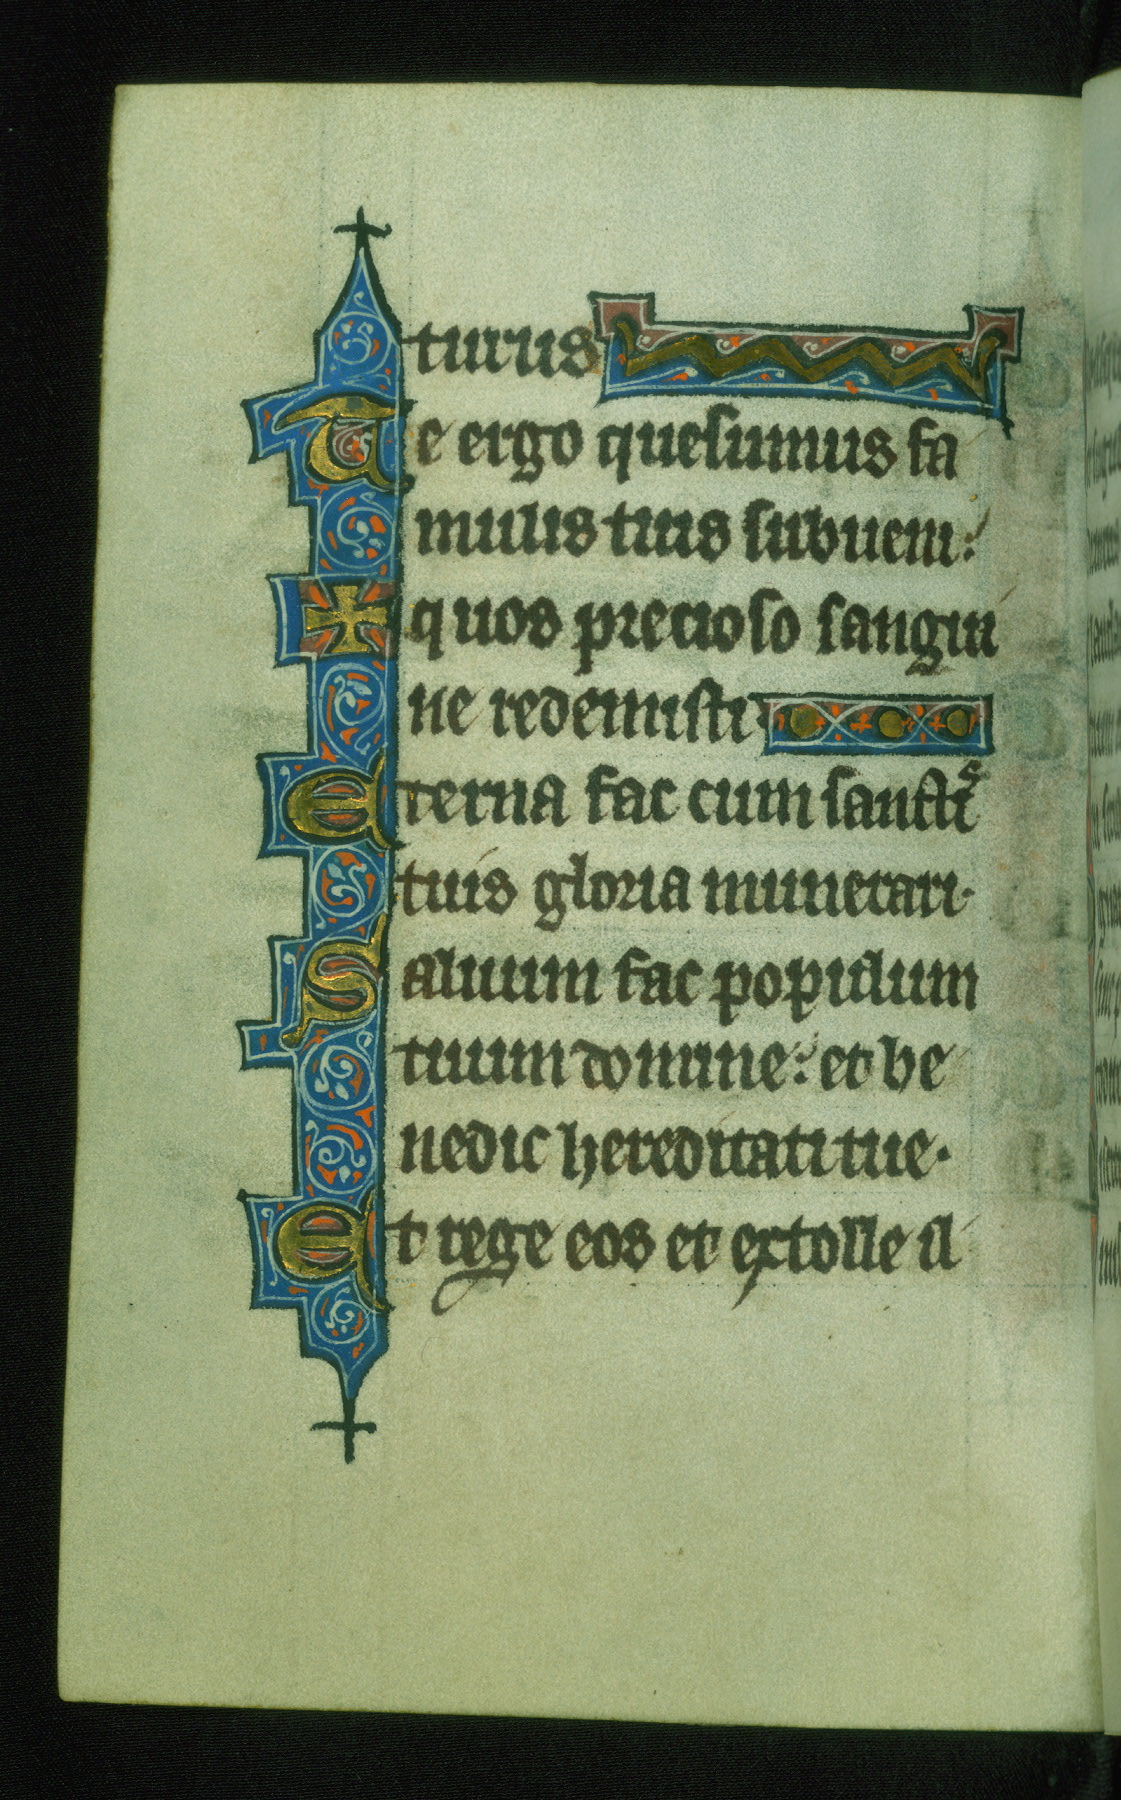 turus
Te ergo quesumus fa
mulis tuis subueni:
quos precioso sangui
ne redemisti
Eterna fac cum sanctis
tuis gloria munerari.
Saluum fac populum
tuum domine: et be
nedic hereditati tue.
Et rege eos et extolle il